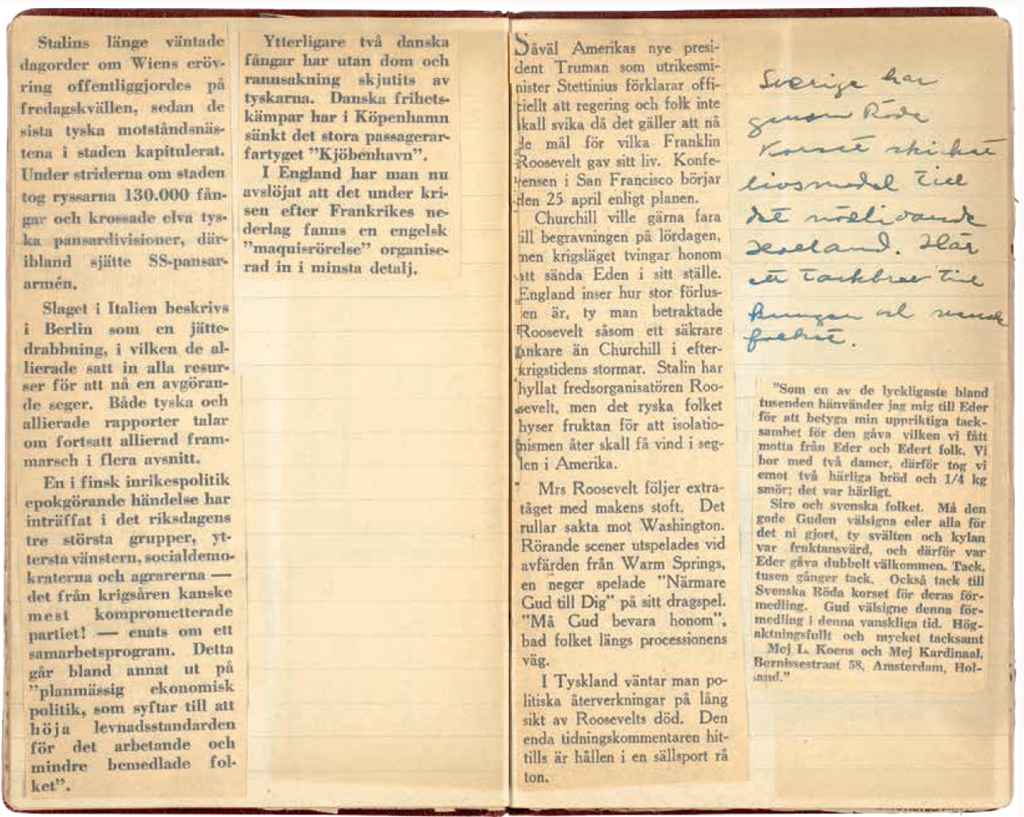 Stalins länge väntade
dagorder om Wiens eröv-
ring offentliggjordes på
fredagskvällen, sedan de
sista tyska motståndsnäs-
tena i staden kapitulerat.
Under striderna om staden
tog ryssarna 130.000 fån-
gar och krossade elva tys-
ka pansardivisioner, där-
ibland sjätte SS-pansar-
armén.
Slaget i Italien beskrivs
i Berlin som en jätte-
drabbning, i vilken de al-
lierade satt in alla resur-
ser för att nå en avgöran-
de seger. Både tyska och
allierade rapporter talar
om fortsatt allierad fram-
marsch i flera avsnitt.
En i finsk inrikespolitik
epokgörande händelse har
inträffat i det riksdagens
tre största grupper, yt-
tersta vänstern, socialdemo-
kraterna och agrarerna —
det från krigsåren kanske
mest komprometterade
partiet! — enats om ett
samarbetsprogram. Detta
går bland annat ut på
"planmässig ekonomisk
politik, som syftar till att
höja levnadsstandarden
för det arbetande och
mindre bemedlade fol-
ket".
Ytterligare två danska
fångar har utan dom och
rannsakning skjutits av
tyskarna. Danska frihets-
kämpar har i Köpenhamn
sänkt det stora passagerar-
fartyget "Kjöbenhavn".
I England har man nu
avslöjat att det under kri-
sen efter Frankrikes ne-
derlag fanns en engelsk
"maquisrörelse" organise-
rad in i minsta detalj.
Såväl Amerikas nye presi-
dent Truman som utrikesmi-
nister Stettinius förklarar offi-
ciellt att regering och folk inte
skall svika då det gäller att nå
de mål för vilka Franklin
Roosevelt gav sitt liv. Konfe-
rensen i San Francisco börjar
den 25 april enligt planen.
Churchill ville gärna fara
till begravningen på lördagen,
men krigsläget tvingar honom
att sända Eden i sitt ställe.
England inser hur stor förlus-
ten är, ty man betraktade
Roosevelt såsom ett säkrare
ankare än Churchill i efter-
krigstidens stormar. Stalin har
hyllat fredsorganisatören Roo-
sevelt, men det ryska folket
hyser fruktan för att isolatio-
nismen åter skall få vind i seg-
len i Amerika.
Mrs Roosevelt följer extra-
tåget med makens stoft. Det
rullar sakta mot Washington.
Rörande scener utspelades vid
avfärden från Warm Springs,
en neger spelade "Närmare
Gud till Dig" på sitt dragspel.
"Må Gud bevara honom",
bad folket längs processionens
väg.
I Tyskland väntar man po-
litiska återverkningar på lång
sikt av Roosevelts död. Den
enda tidningskommentaren hit-
tills är hållen i en sällsport rå
ton.
Sverige har
genom Röda
Korset skickat
livsmedel till
det nödlidande
Holland. Här
ett tackbrev till
kungen och svenska
folket.
"Som en av de lyckligaste bland
tusenden hänvänder jag mig till Eder
för att betyga min uppriktiga tack-
samhet för den gåva vilken vi fått
motta från Eder och Edert folk. Vi
bor med två damer, därför tog vi
emot två härliga bröd och 1/4 kg
smör; det var härligt.
Sire och svenska folket. Må den
gode Guden välsigna eder alla för
det ni gjort, ty svälten och kylan
var fruktansvärd, och därför var
Eder gåva dubbelt välkommen. Tack,
tusen gånger tack. Också tack till
Svenska Röda korset för deras för-
medling. Gud välsigne denna för-
medling i denna vanskliga tid. Hög-
aktningsfullt och mycket tacksamt
Mej L. Koens och Mej Kardinaal,
Bernissestraat 58, Amsterdam, Hol-
land."